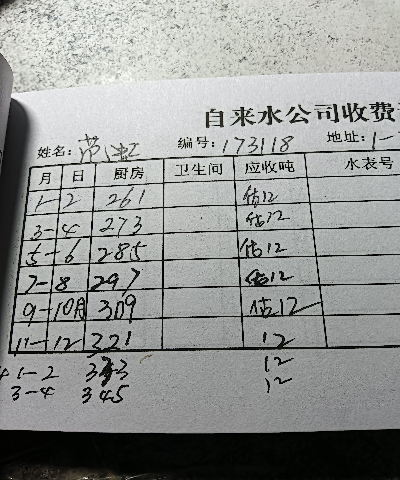 自来水公司收费
姓名: 范 编号: 173118 地址: 1-
月 日 厨房 卫生间 应收吨 水表号
1-2 261 估12
3-4 273 估12
5-6 285 估12
7-8 297 估12
9-10月 309 估12
11-12 321 12
1-2 333 12
3-4 345 12